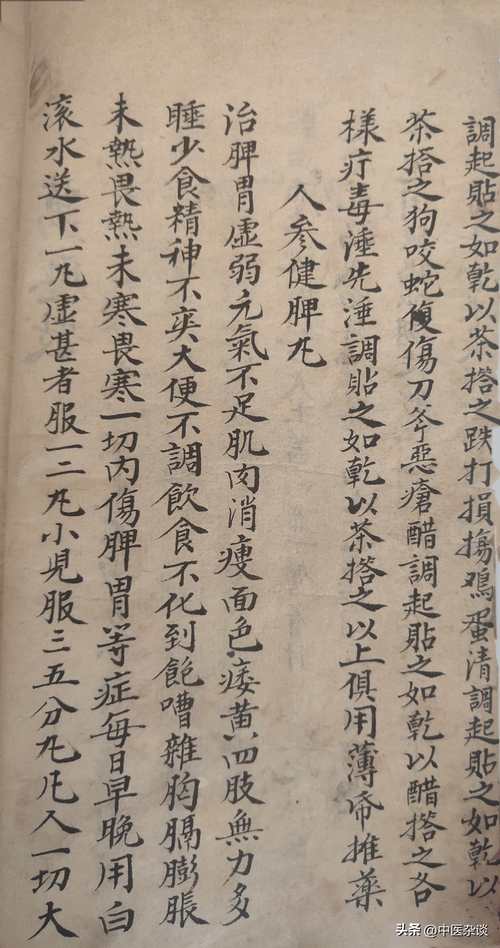 調起貼之如乾以茶搭之跌打損傷鳮蛋清調起貼之如乾以
茶搭之狗咬蛇傻傷刀斧惡瘡醋調起貼之如乾以醋搭之各
樣疔毒湩先湩調貼之如乾以茶搭之以上俱用薄帋摊藥
人參健脾凡
治脾胃虛弱元氣不足肌肉消瘦面色痿黃四肢無力多
睡少食精神不爽大便不調飲食不化到飽嘈雜胸膈膨脹
未熱畏熱未寒畏寒一切內傷脾胃等症每日早晚用白
滚水送下一凡虛甚者服一二凡小児服三五分凡凡人一切大
头条@中医杂谈